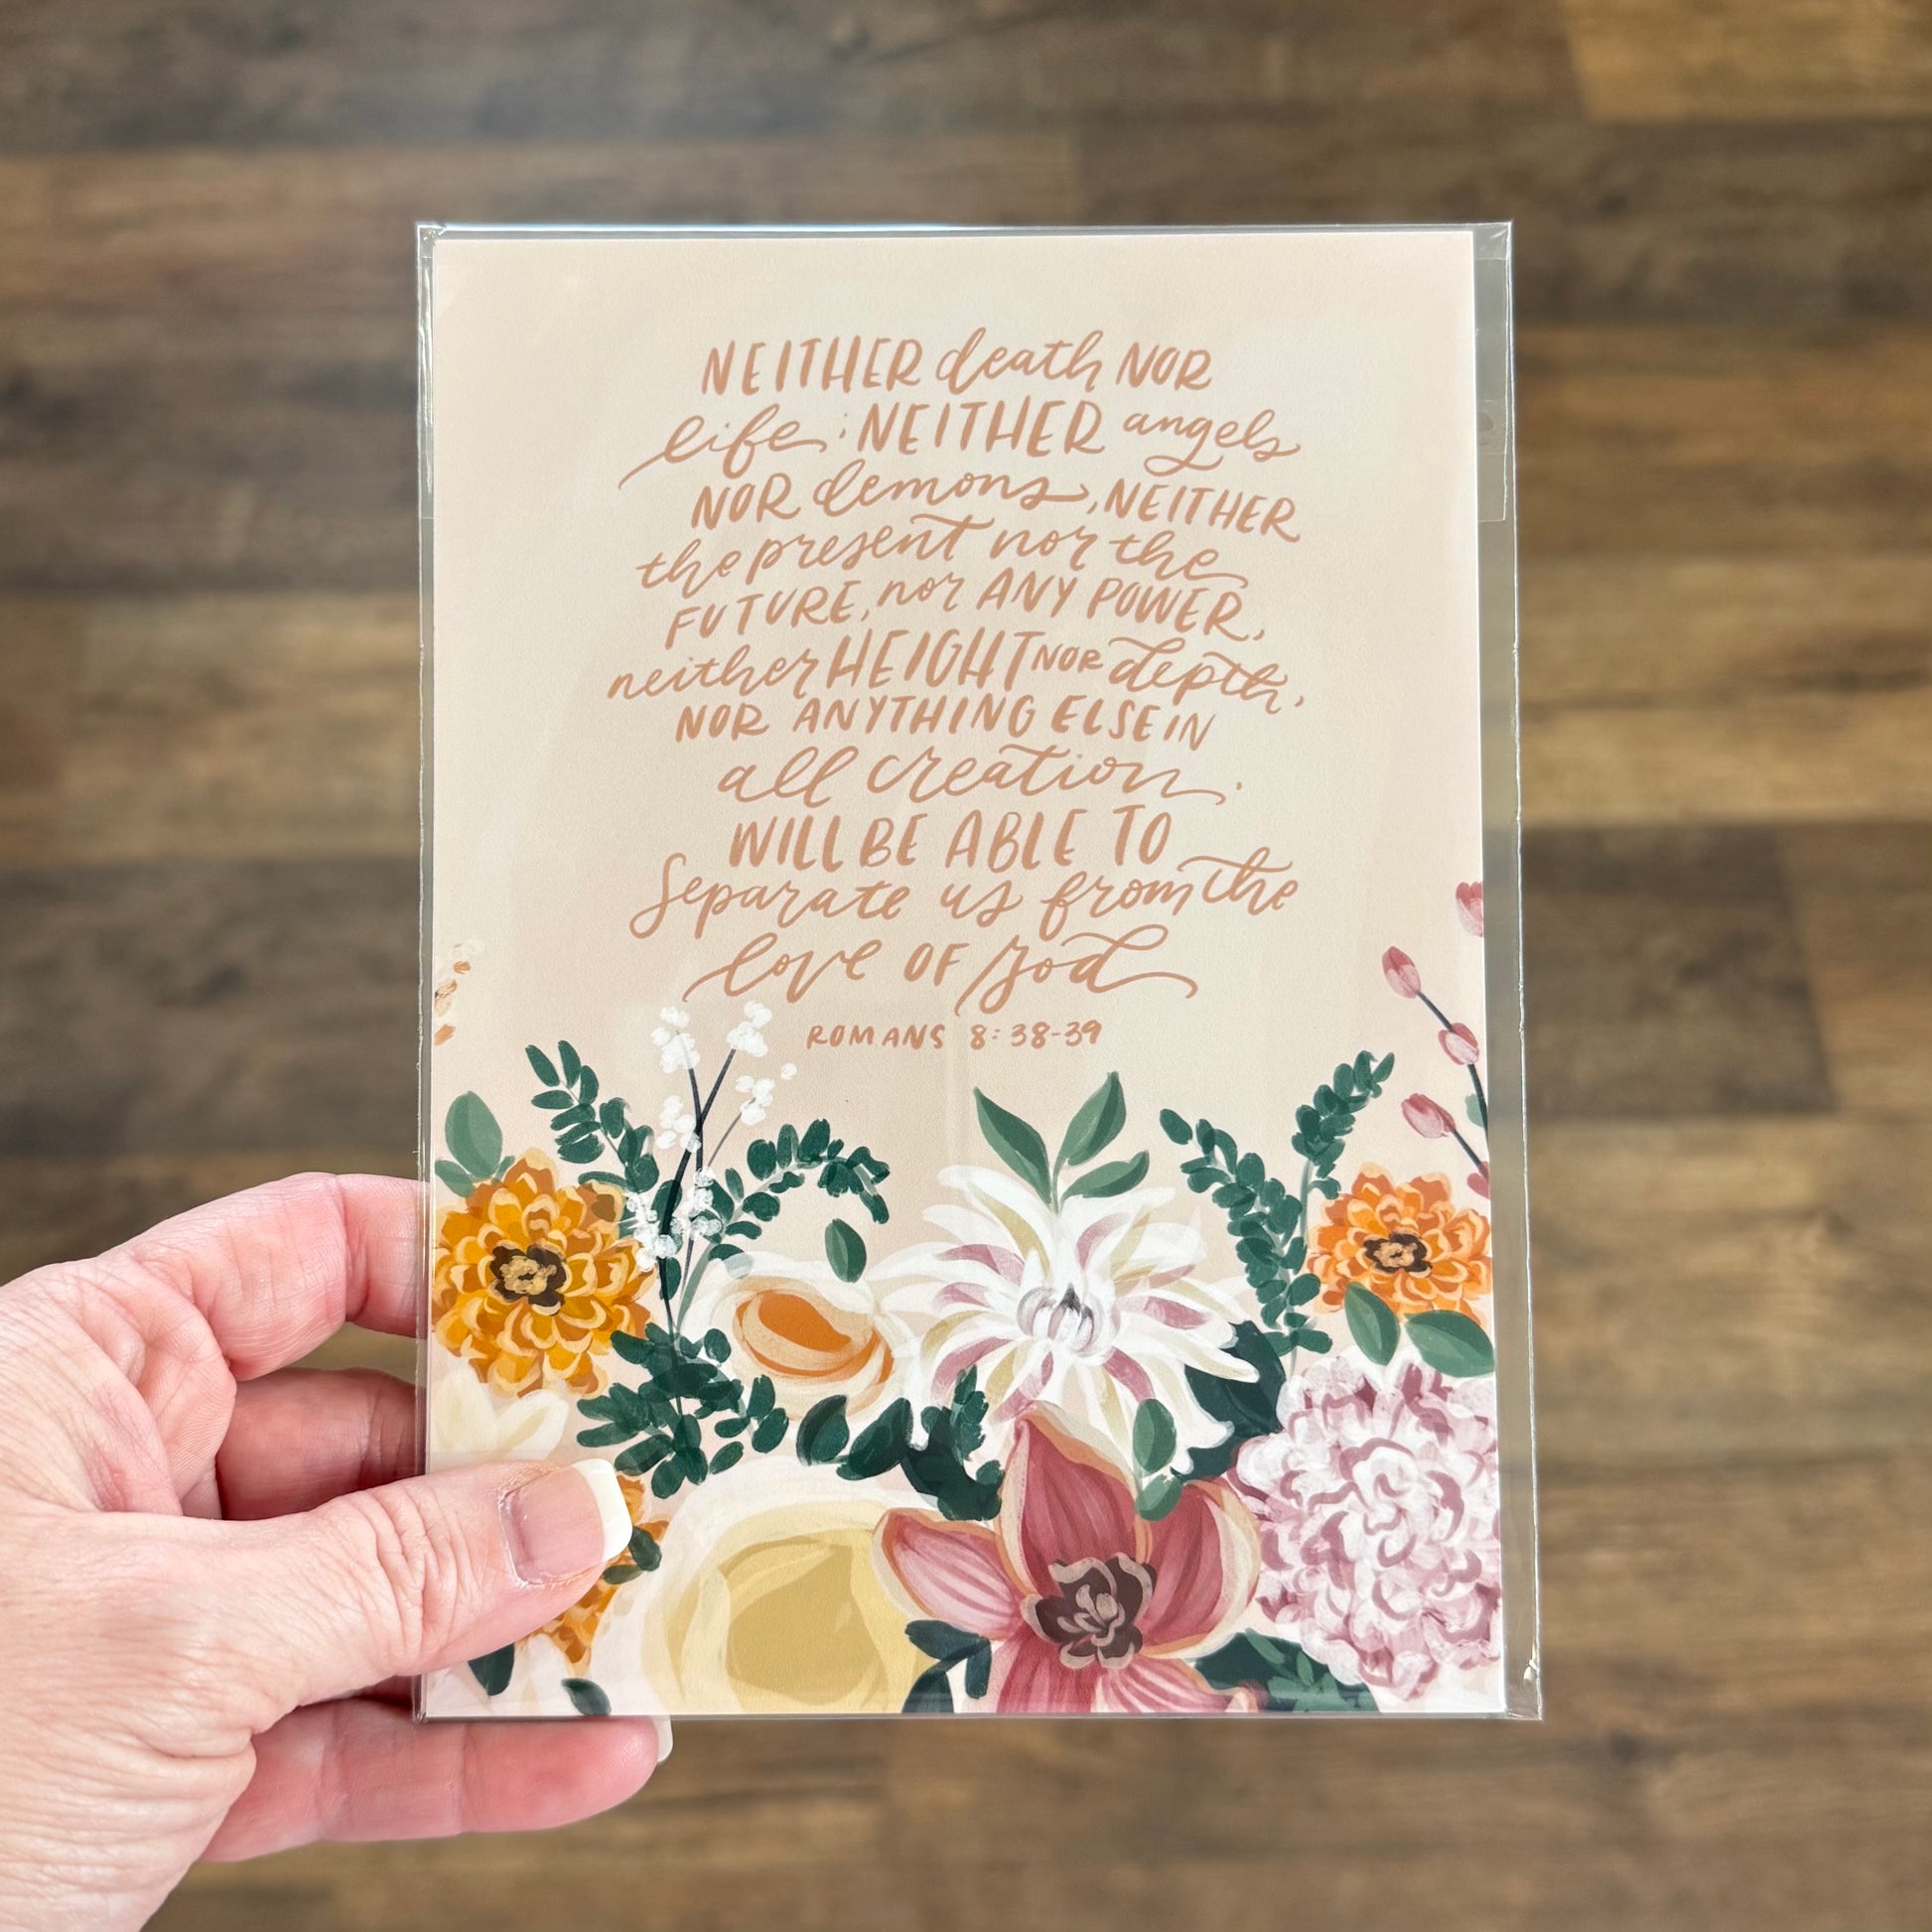 NEITHER death NOR
life; NEITHER angels
NOR demons, NEITHER
the present nor the
FUTURE, nor ANY POWER,
neither HEIGHT NOR depth,
NOR ANYTHING ELSE IN
all creation.
WILL BE ABLE TO
Separate us from the
love OF God
ROMANS 8:38-39